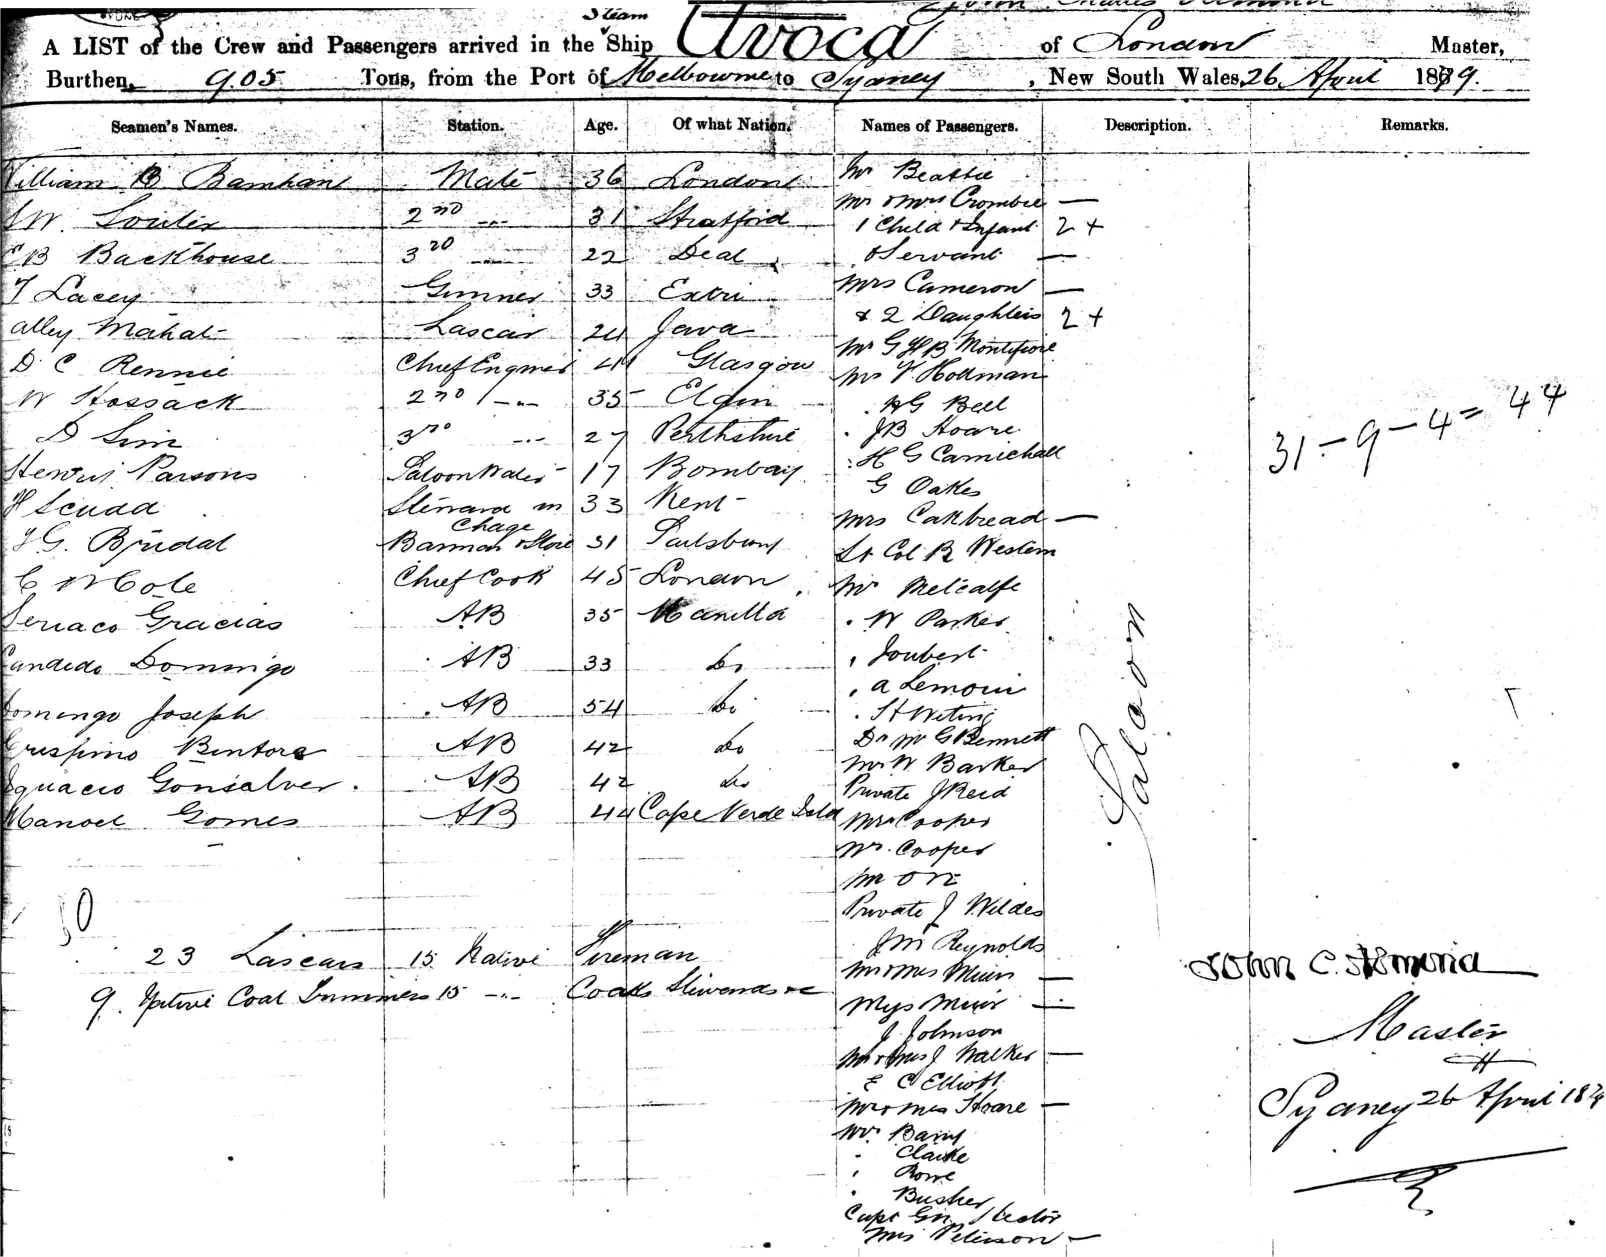 Steam
A LIST of the Crew and Passengers arrived in the Ship Avoca of London Master,
Burthen, 905 Tons, from the Port of Melbourne to Sydney, New South Wales, 26 April 1879.
Seamen's Names. Station. Age. Of what Nation. Names of Passengers. Description. Remarks.
William B Mate 36 London
2nd " 31 Stratford
B Backhouse 3rd " 22 Deal
T Lacey Gunner 33
Alley Mahat Lascar 24 Java
D. C Rennie Chief Engineer 41 Glasgow
W Hossack 2nd " 35 Elgin
D Sim 3rd " 27 Perthshire
Henry Parsons Saloon Waiter 17 Bombay
H Scudd Steward in Chage 33 Kent
J G. Bridal Barman & Store 31 Salsbury
C W Cole Chief Cook 45 London
Seriaco Gracias AB 35 Manilla
Candido Domingo AB 33 do
Domingo Joseph AB 54 do
Crispino AB 42 do
Ignacio Gonsalves AB 42 do
Manoel Gomes AB 44 Cape Verde Isld
50
23 Lascars 15 Native Fireman
9. Native Coal Trimmers 15 " Cooks Stewards &c
Mr Beattie
Mr & Mrs Crombie —
1 Child & Infant 2 +
& Servant —
Mrs Cameron —
& 2 Daughters 2 +
Mr G H B Montifiore
Mr F. Hollman
. H G Bell
. J B Hoare
. H G Camichall
G Oakes
Mrs Cakbread —
Lt Col R Western
Mr Metcalfe
. W Parker
. Joubert
. A Lemoin
. St
Dr M G Bennett
Mr W Barker
Private J Reid
Mrs Cooper
Mr. Cooper
Mr Orr
Private J Wildes
J M Reynolds
Mr & Mrs Muir —
Mys Muir —
J Johnson
Mr & Mrs J Walker —
E C Elliott
Mr & Mrs Hoare —
Mr Barry
. Clarke
. Rowe
. Busher
Capt
Mrs Peterson —
Saloon
31 - 9 - 4 = 44
John C.
Master
Sydney 26 April 187